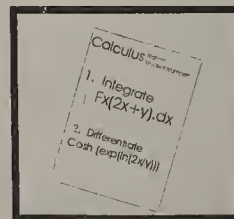 Calculus
1. Integrate
Fx(2x+y).dx
2. Differentiate
Cosh (exp(ln(2x/y)))